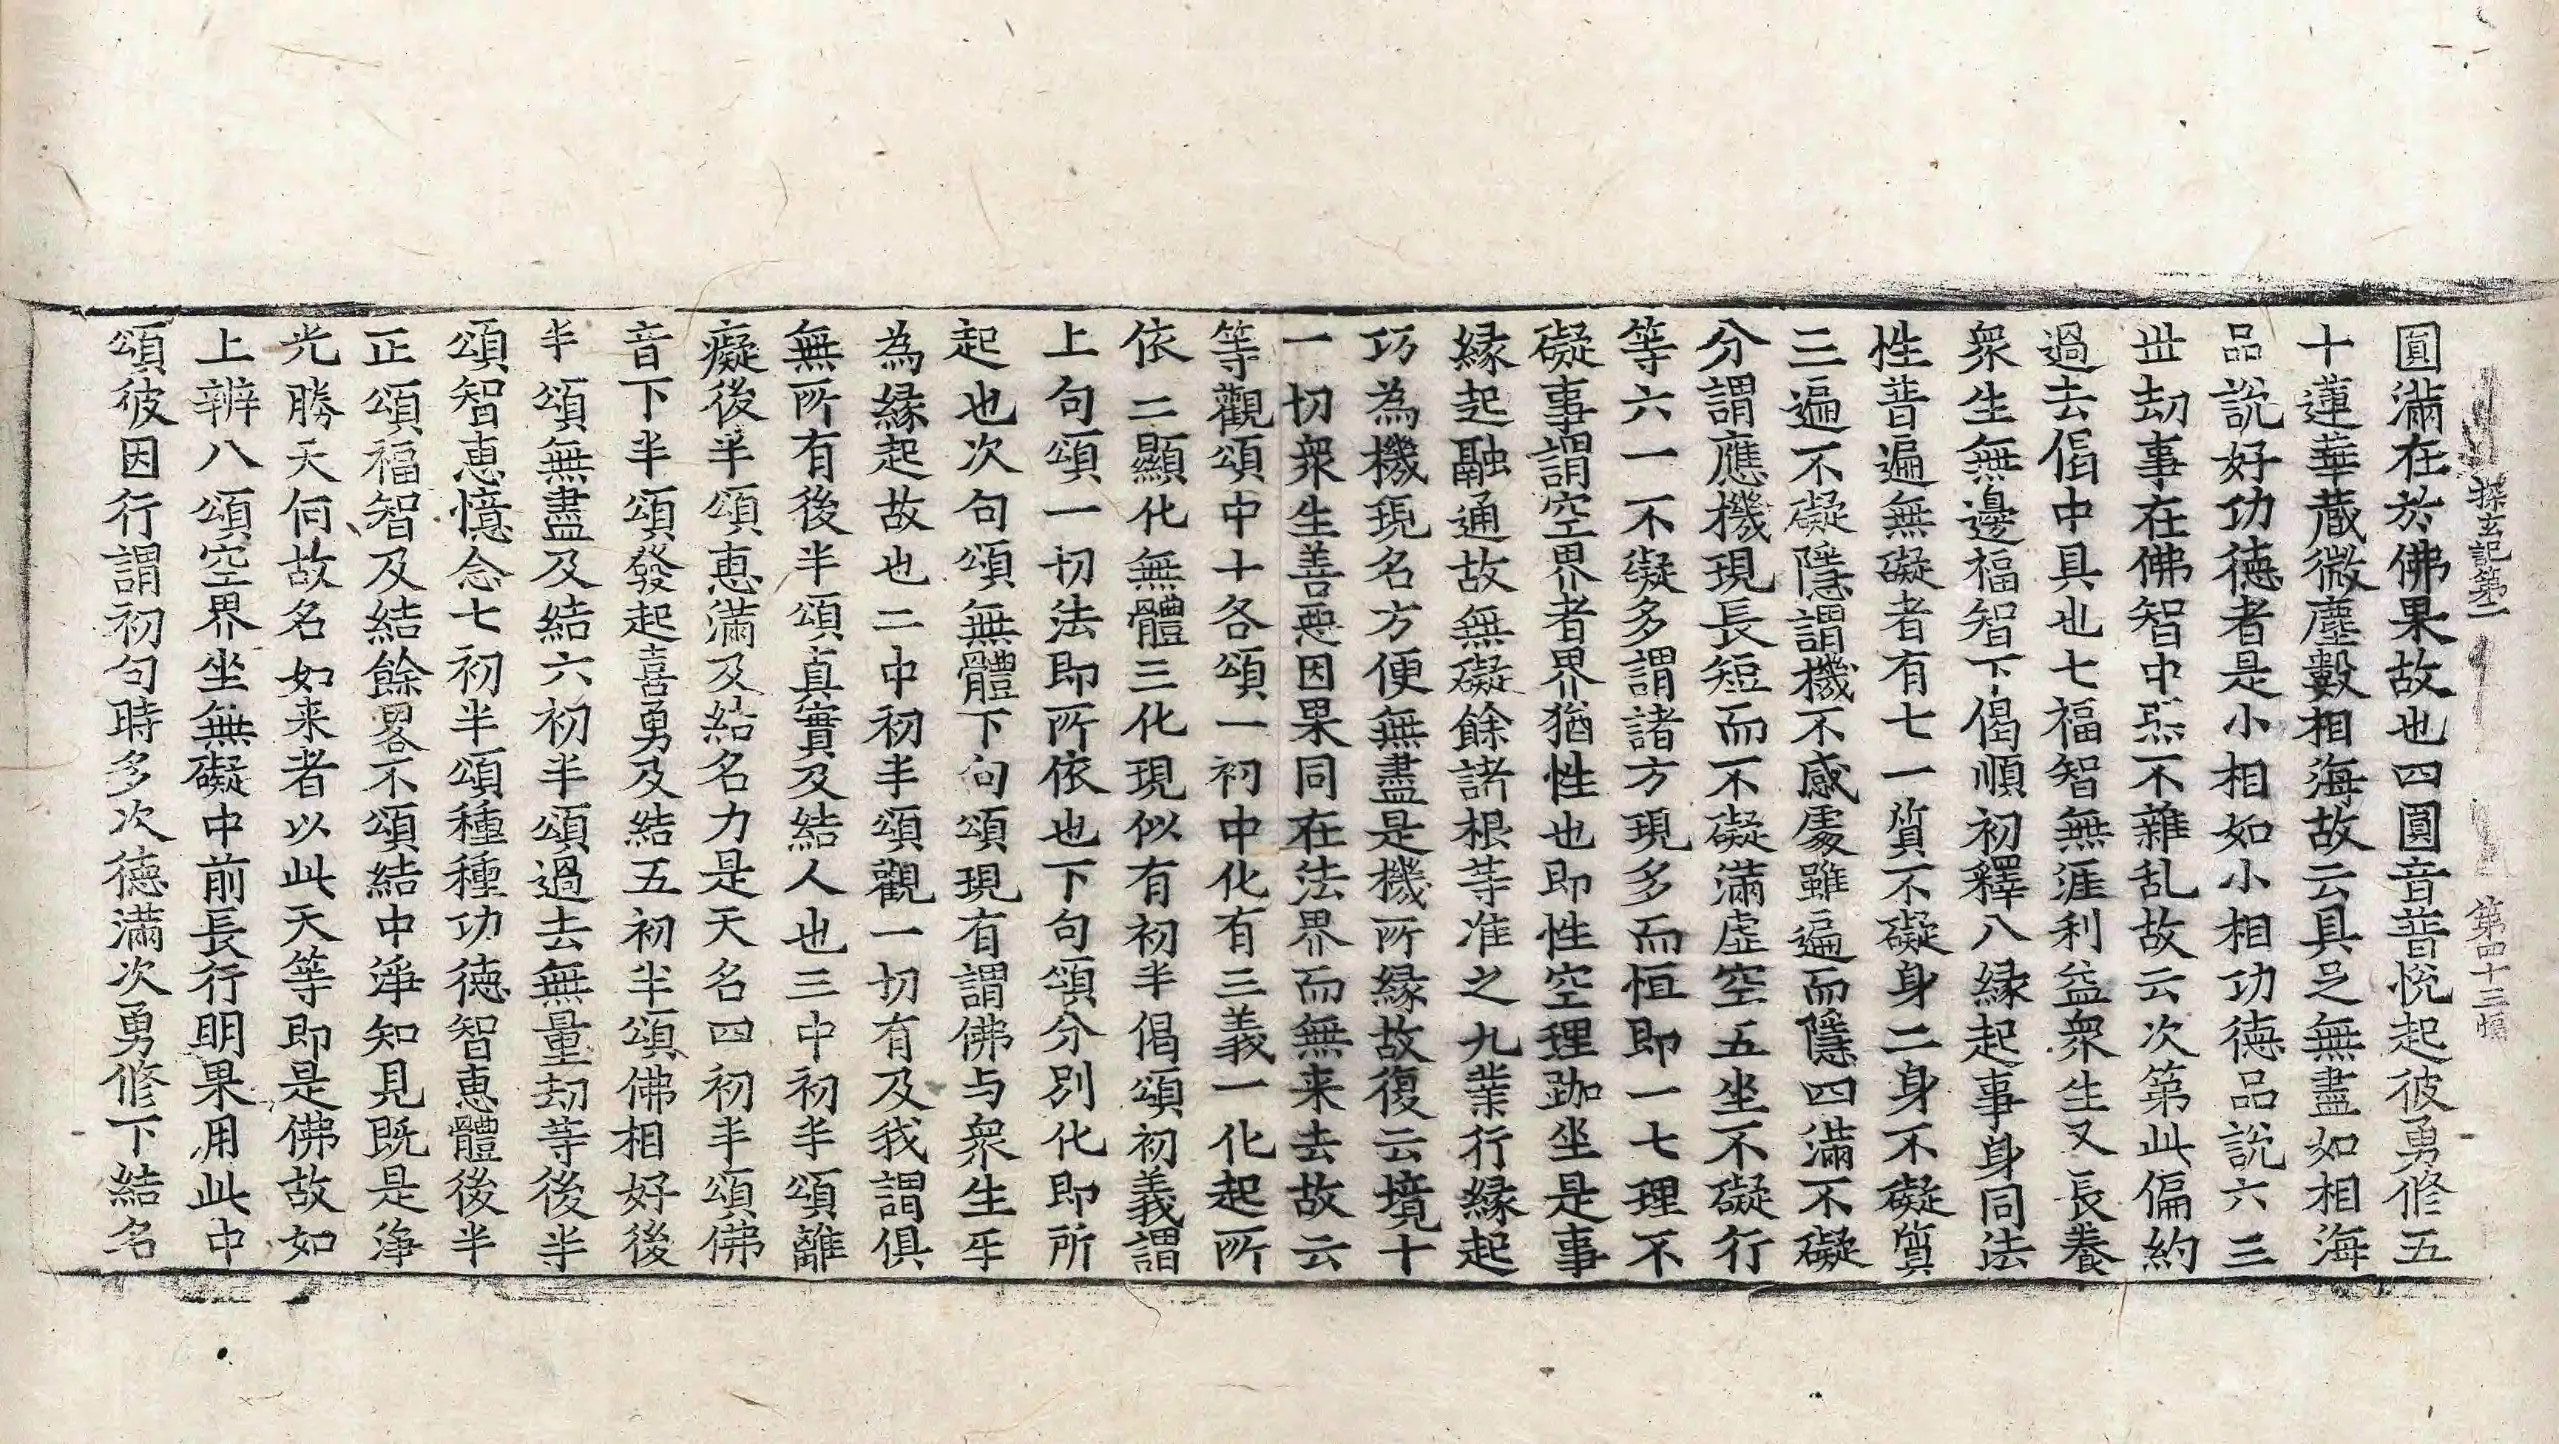 探玄記第二　第四十三幅
圓滿在於佛果故也四圓音普悅起彼勇修五
十蓮華蔵微塵數相海故云具足無盡如相海
品說好功德者是小相如小相功德品說六三
丗劫事在佛智中炁不雜乱故云次第此偏約
過去偈中具也七福智無涯利益衆生又長養
衆生無邊福智下偈順初釋八縁起事身同法
性普遍無礙者有七一質不礙身二身不礙質
三遍不礙隱謂機不感處雖遍而隱四滿不礙
分謂應機現長短而不礙滿虛空五坐不礙行
等六一不礙多謂諸方現多而恒即一七理不
礙事謂空界者界猶性也即性空理跏坐是事
縁起融通故無礙餘諸根等准之九業行縁起
巧為機現名方便無盡是機所縁故復云境十
一切衆生善悪因果同在法界而無来去故云
等觀頌中十各頌一初中化有三義一化起所
依二顯化無體三化現似有初半偈頌初義謂
上句頌一切法即所依也下句頌分別化即所
起也次句頌無體下句頌現有謂佛与衆生㸦
為縁起故也二中初半頌觀一切有及我謂俱
無所有後半頌真實及結人也三中初半頌離
癡後半頌惠滿及結名力是天名四初半頌佛
音下半頌發起喜勇及結五初半頌佛相好後
半頌無盡及結六初半頌過去無量劫等後半
頌智恵憶念七初半頌種種功德智恵體後半
正頌福智及結餘畧不頌結中淨知見既是淨
光勝天何故名如来者以此天等即是佛故如
上辨八頌空界坐無礙中前長行明果用此中
頌彼因行謂初句時多次德滿次勇修下結名